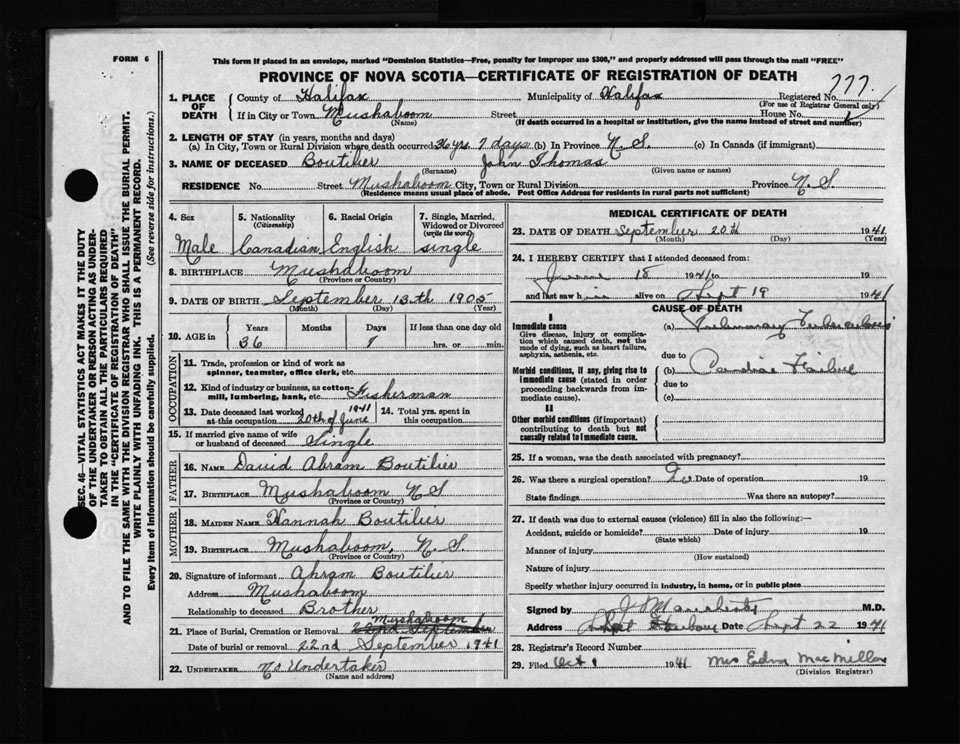 FORM 6
This form if placed in an envelope, marked "Dominion Statistics—Free, penalty for improper use $300," and properly addressed will pass through the mail "FREE"
PROVINCE OF NOVA SCOTIA—CERTIFICATE OF REGISTRATION OF DEATH
777
1. PLACE OF DEATH
County of Halifax Municipality of Halifax Registered No.
(For use of Registrar General only)
If in City or Town Mushaboom Street House No.
(Name) (If death occurred in a hospital or institution, give the name instead of street and number)
2. LENGTH OF STAY (in years, months and days)
(a) In City, Town or Rural Division where death occurred 36 yrs. 7 days (b) In Province N. S. (c) In Canada (if immigrant)
3. NAME OF DECEASED Boutilier John Thomas
(Surname) (Given name or names)
RESIDENCE No. Street Mushaboom City, Town or Rural Division Province N. S.
(Residence means usual place of abode. Post Office Address for residents in rural parts not sufficient)
4. Sex 5. Nationality (Citizenship) 6. Racial Origin 7. Single, Married, Widowed or Divorced (write the word)
Male Canadian English single
8. BIRTHPLACE Mushaboom
(Province or Country)
9. DATE OF BIRTH September 13th 1905
(Month) (Day) (Year)
10. AGE in Years Months Days If less than one day old
36 7 hrs. or min.
OCCUPATION
11. Trade, profession or kind of work as spinner, teamster, office clerk, etc.
12. Kind of industry or business, as cotton-mill, lumbering, bank, etc. Fisherman
13. Date deceased last worked at this occupation 20th of June 1941 14. Total yrs. spent in this occupation
15. If married give name of wife or husband of deceased Single
FATHER
16. NAME David Abram Boutilier
17. BIRTHPLACE Mushaboom N S
(Province or Country)
MOTHER
18. MAIDEN NAME Hannah Boutilier
19. BIRTHPLACE Mushaboom, N. S.
(Province or Country)
20. Signature of informant Abram Boutilier
Address Mushaboom
Relationship to deceased Brother
Mushaboom
21. Place of Burial, Cremation or Removal 22nd September
Date of burial or removal 22nd September 1941
22. UNDERTAKER No Undertaker
(Name and address)
MEDICAL CERTIFICATE OF DEATH
23. DATE OF DEATH September 20th 1941
(Month) (Day) (Year)
24. I HEREBY CERTIFY that I attended deceased from:
June 18 1941 to 19
and last saw him alive on Sept 19 1941
CAUSE OF DEATH
I
Immediate cause (a) Pulmonary Tuberculosis
Give disease, injury or complication which caused death, not the mode of dying, such as heart failure, asphyxia, asthenia, etc.
due to
Morbid conditions, if any, giving rise to immediate cause (stated in order proceeding backwards from immediate cause).
(b) Cardiac Failure
due to
(c)
II
Other morbid conditions (if important) contributing to death but not causally related to immediate cause.
25. If a woman, was the death associated with pregnancy?
26. Was there a surgical operation? Date of operation 19
State findings Was there an autopsy?
27. If death was due to external causes (violence) fill in also the following:—
Accident, suicide or homicide? Date of injury 19
(State which)
Manner of injury
(How sustained)
Nature of injury
Specify whether injury occurred in industry, in home, or in public place
Signed by M.D.
Address Harbour Date Sept 22 1941
28. Registrar's Record Number
29. Filed Oct 1 1941 Mrs Edna MacMillan
(Division Registrar)
SEC. 46—VITAL STATISTICS ACT MAKES IT THE DUTY
OF THE UNDERTAKER OR PERSON ACTING AS UNDER-
TAKER TO OBTAIN ALL THE PARTICULARS REQUIRED
IN THE "CERTIFICATE OF REGISTRATION OF DEATH"
AND TO FILE THE SAME WITH THE DIVISION REGISTRAR WHO SHALL ISSUE THE BURIAL PERMIT.
WRITE PLAINLY WITH UNFADING INK. THIS IS A PERMANENT RECORD.
Every item of information should be carefully supplied. (See reverse side for instructions.)